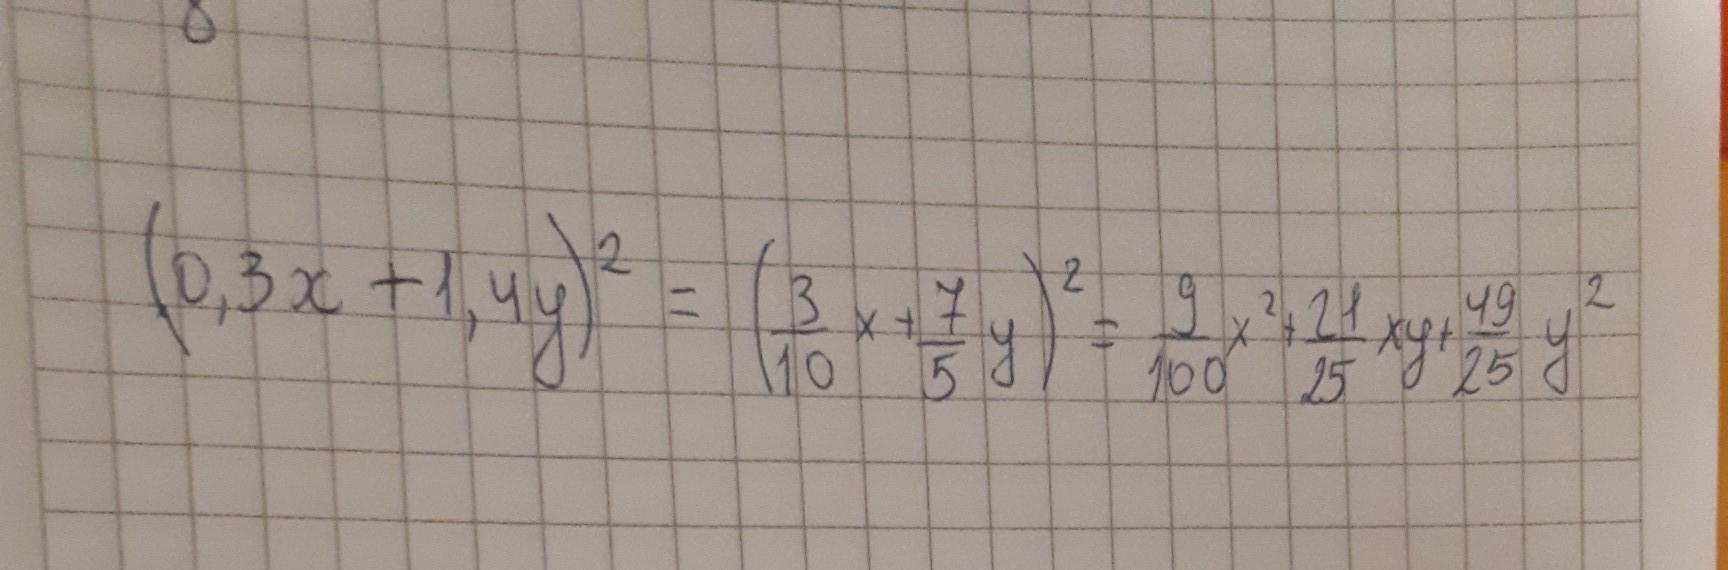 (0,3x + 1,4y)² = (3/10 x + 7/5 y)² = 9/100 x² + 21/25 xy + 49/25 y²